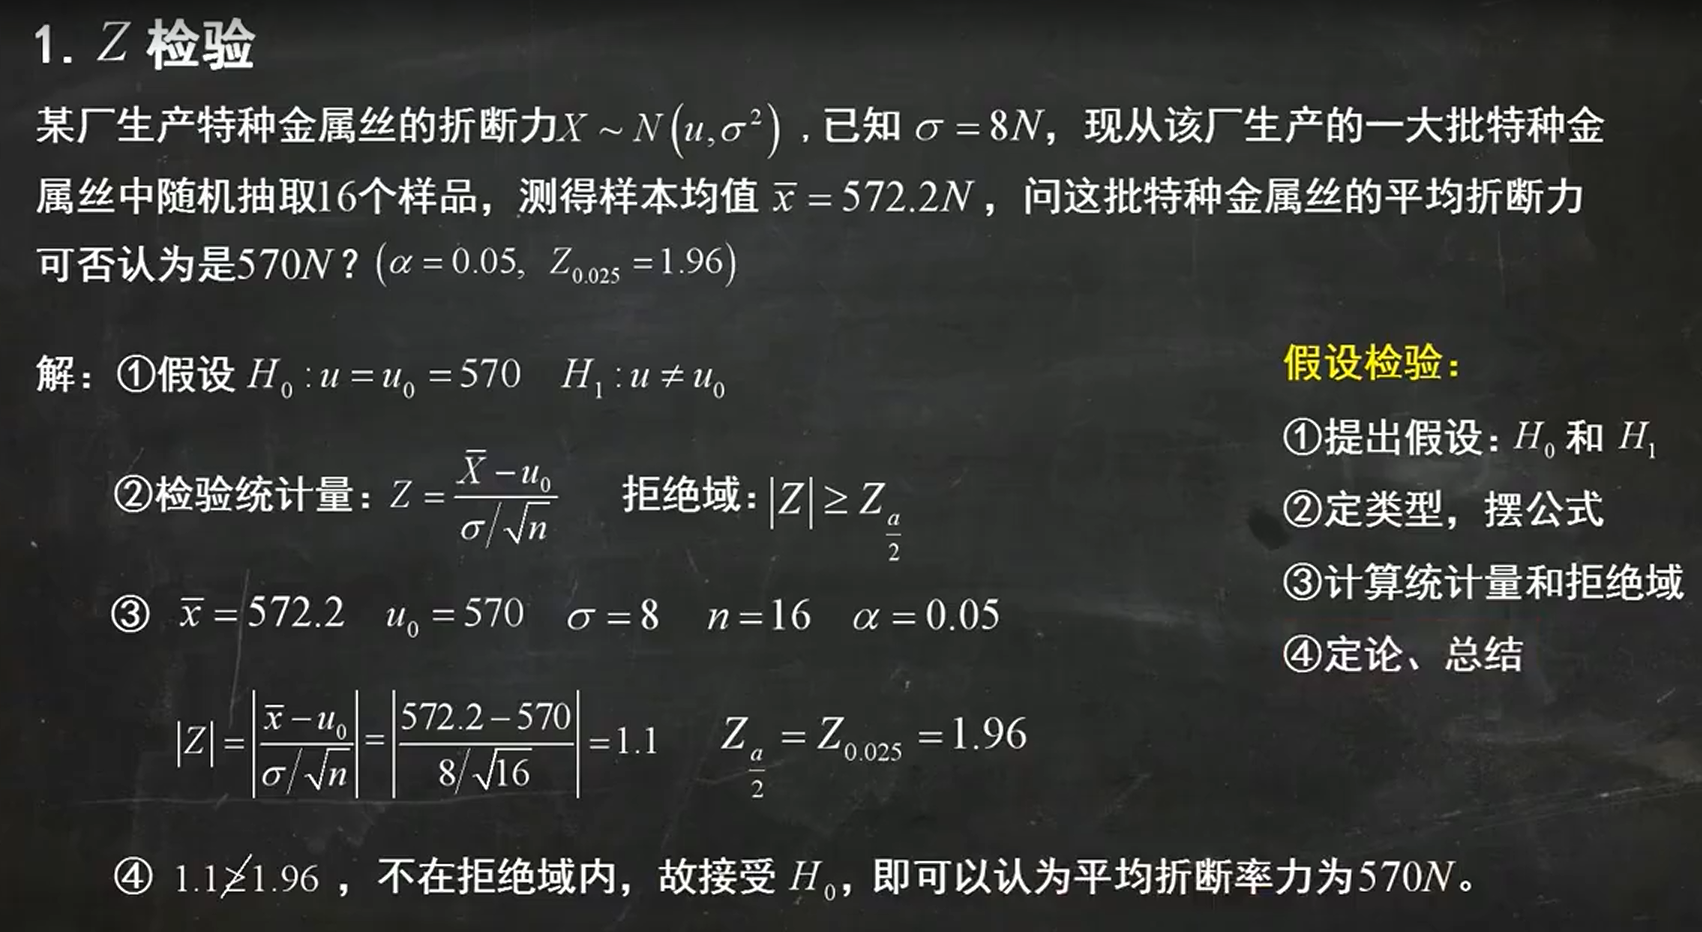 1. Z 检验
某厂生产特种金属丝的折断力X ~ N(u,σ²) , 已知 σ = 8N，现从该厂生产的一大批特种金
属丝中随机抽取16个样品，测得样本均值 x̄ = 572.2N ，问这批特种金属丝的平均折断力
可否认为是570N？(α = 0.05, Z₀.₀₂₅ = 1.96)
解：①假设 H₀ : u = u₀ = 570 H₁ : u ≠ u₀
②检验统计量：Z = (X̄ − u₀)/(σ/√n) 拒绝域：|Z| ≥ Z_(a/2)
③ x̄ = 572.2 u₀ = 570 σ = 8 n = 16 α = 0.05
|Z| = |(x̄ − u₀)/(σ/√n)| = |(572.2 − 570)/(8/√16)| = 1.1 Z_(a/2) = Z₀.₀₂₅ = 1.96
④ 1.1≱1.96 ，不在拒绝域内，故接受 H₀，即可以认为平均折断率力为570N。
假设检验：
①提出假设：H₀ 和 H₁
②定类型，摆公式
③计算统计量和拒绝域
④定论、总结